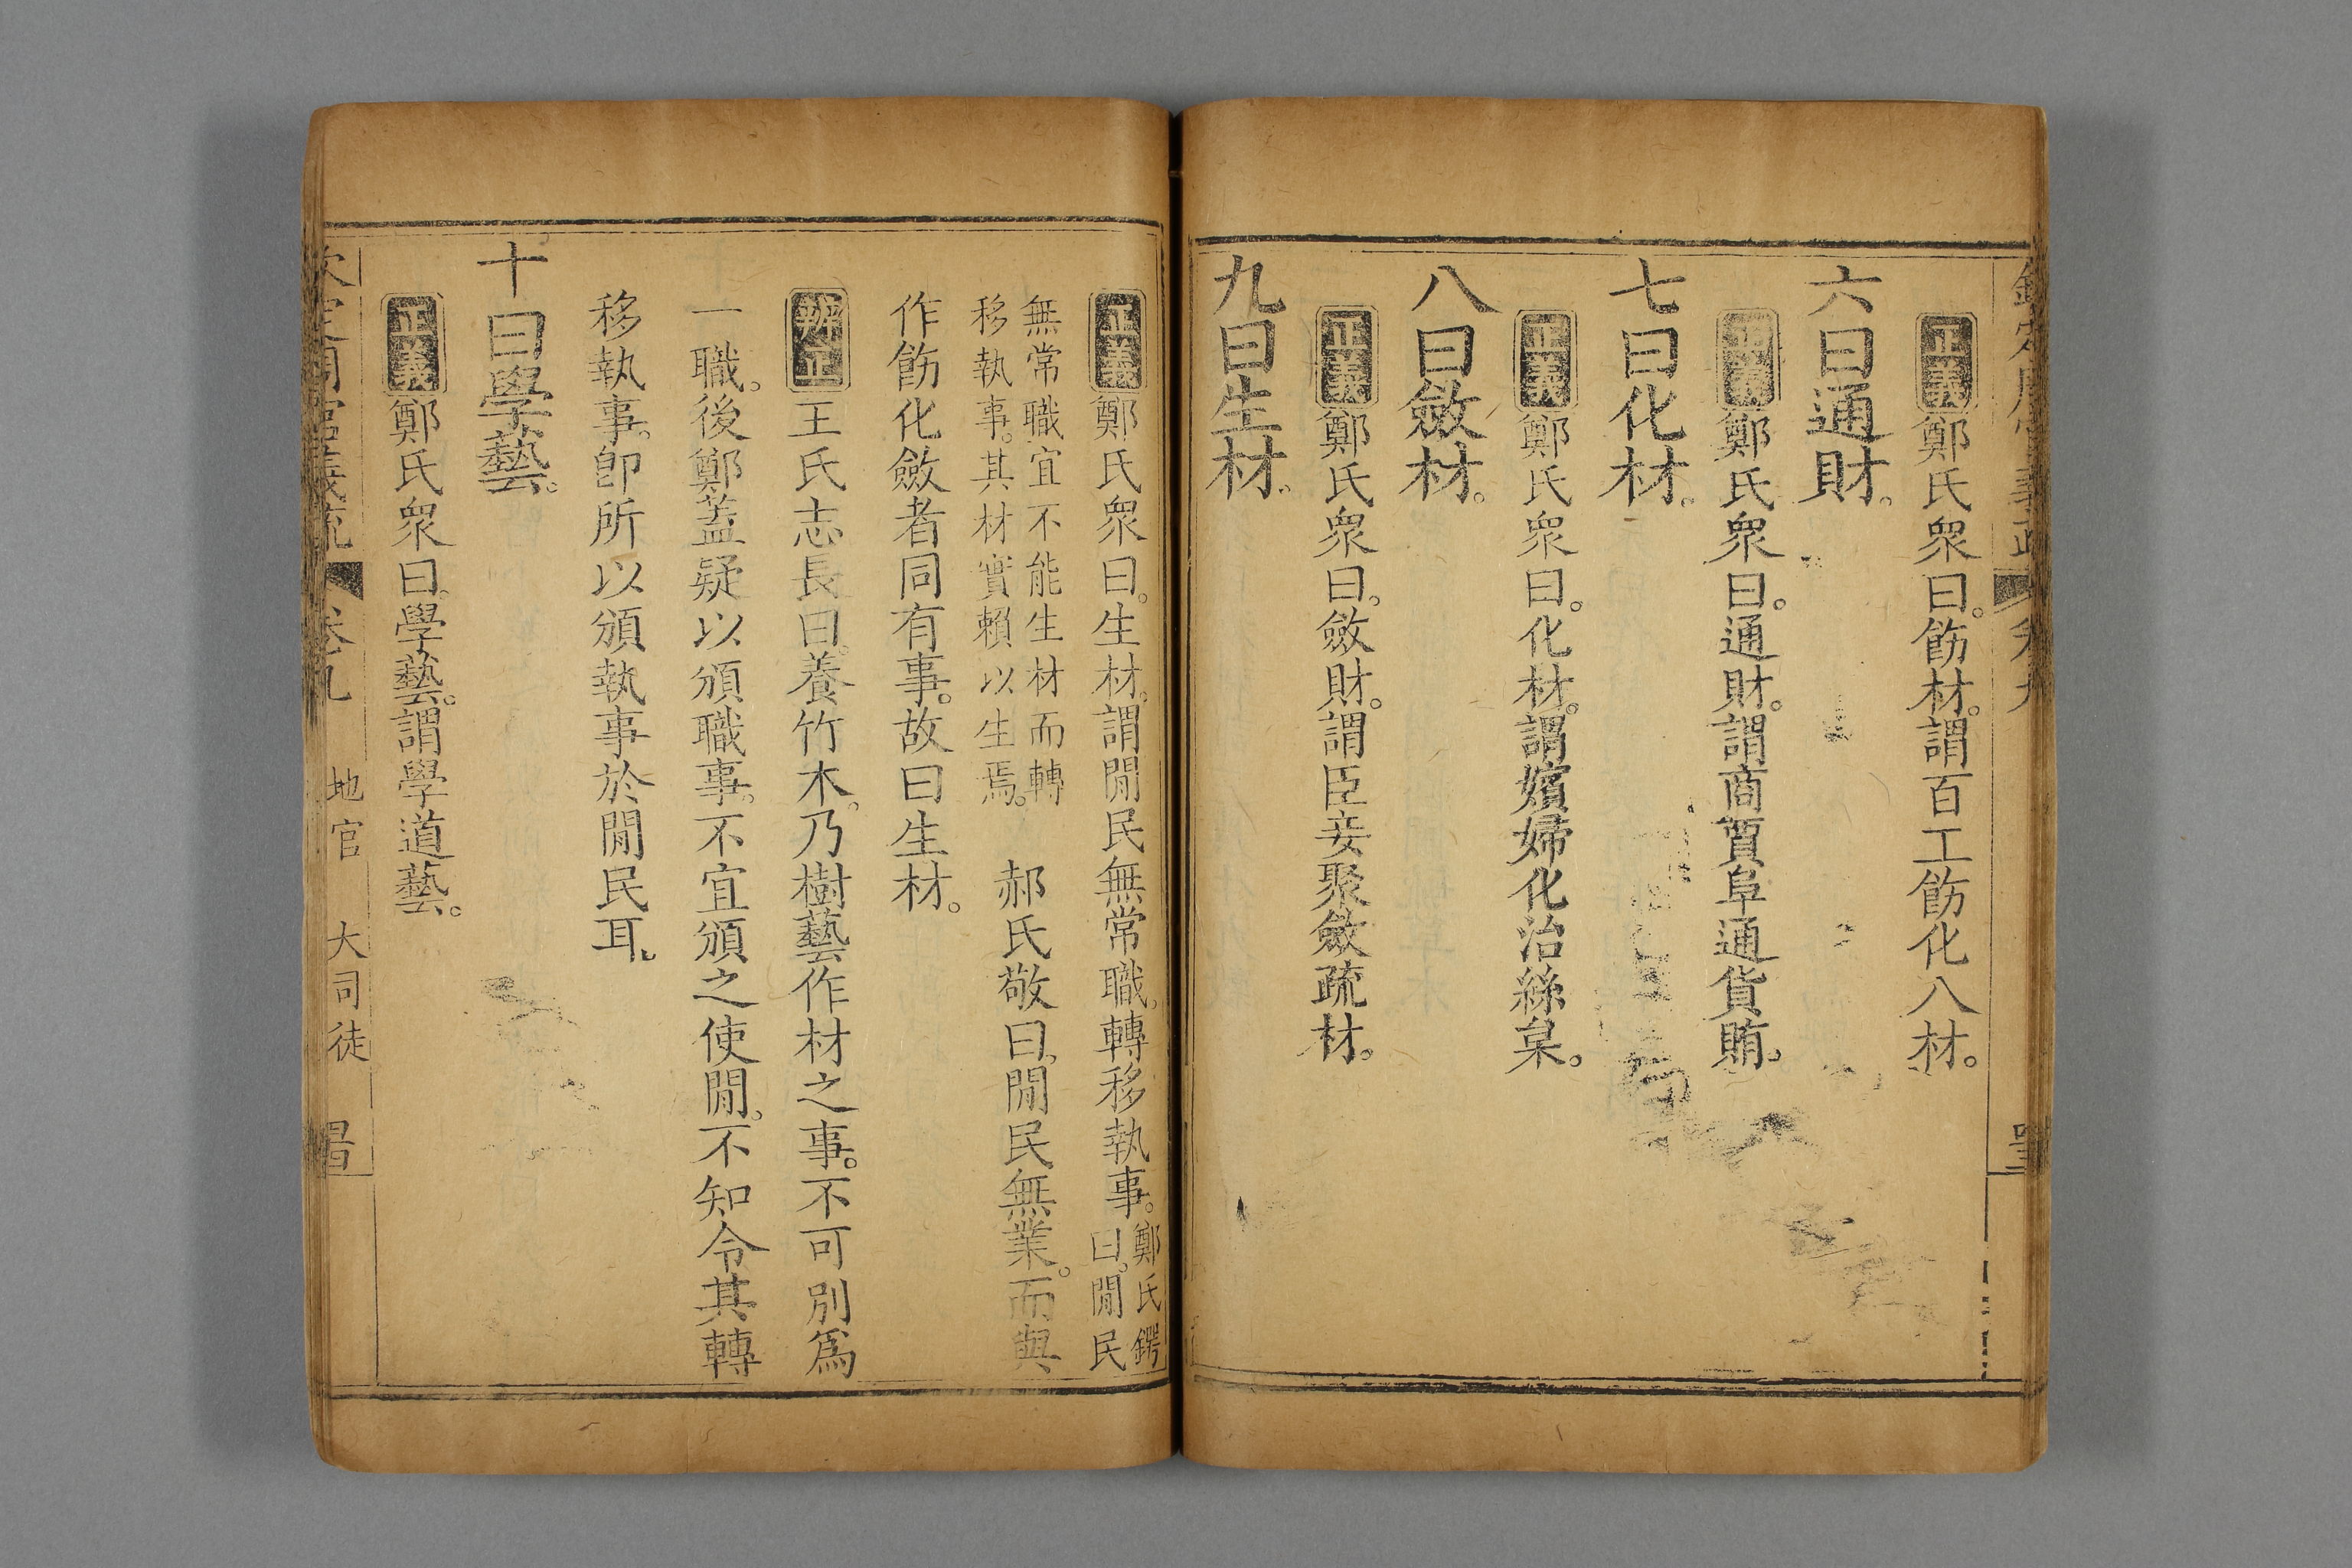 正義鄭氏衆曰。飭材。謂百工飭化八材。
六曰通財。
正義鄭氏衆曰。通財。謂商賈阜通貨賄。
七曰化材。
正義鄭氏衆曰。化材。謂嬪婦化治絲枲。
八曰斂材。
正義鄭氏衆曰。斂財。謂臣妾聚斂疏材。
九曰生材。
正義鄭氏衆曰。生材。謂閒民無常職。轉移執事。鄭氏鍔
曰。閒民
無常職宜不能生材而轉
移執事。其材實賴以生焉。郝氏敬曰。閒民無業。而與
作飭化斂者同有事。故曰生材。
辨正王氏志長曰。養竹木。乃樹藝作材之事。不可別爲
一職。後鄭蓋疑以頒職事。不宜頒之使閒。不知令其轉
移執事。卽所以頒執事於閒民耳。
十曰學藝。
正義鄭氏衆曰。學藝。謂學道藝。
欽定周官義疏 卷九 地官 大司徒